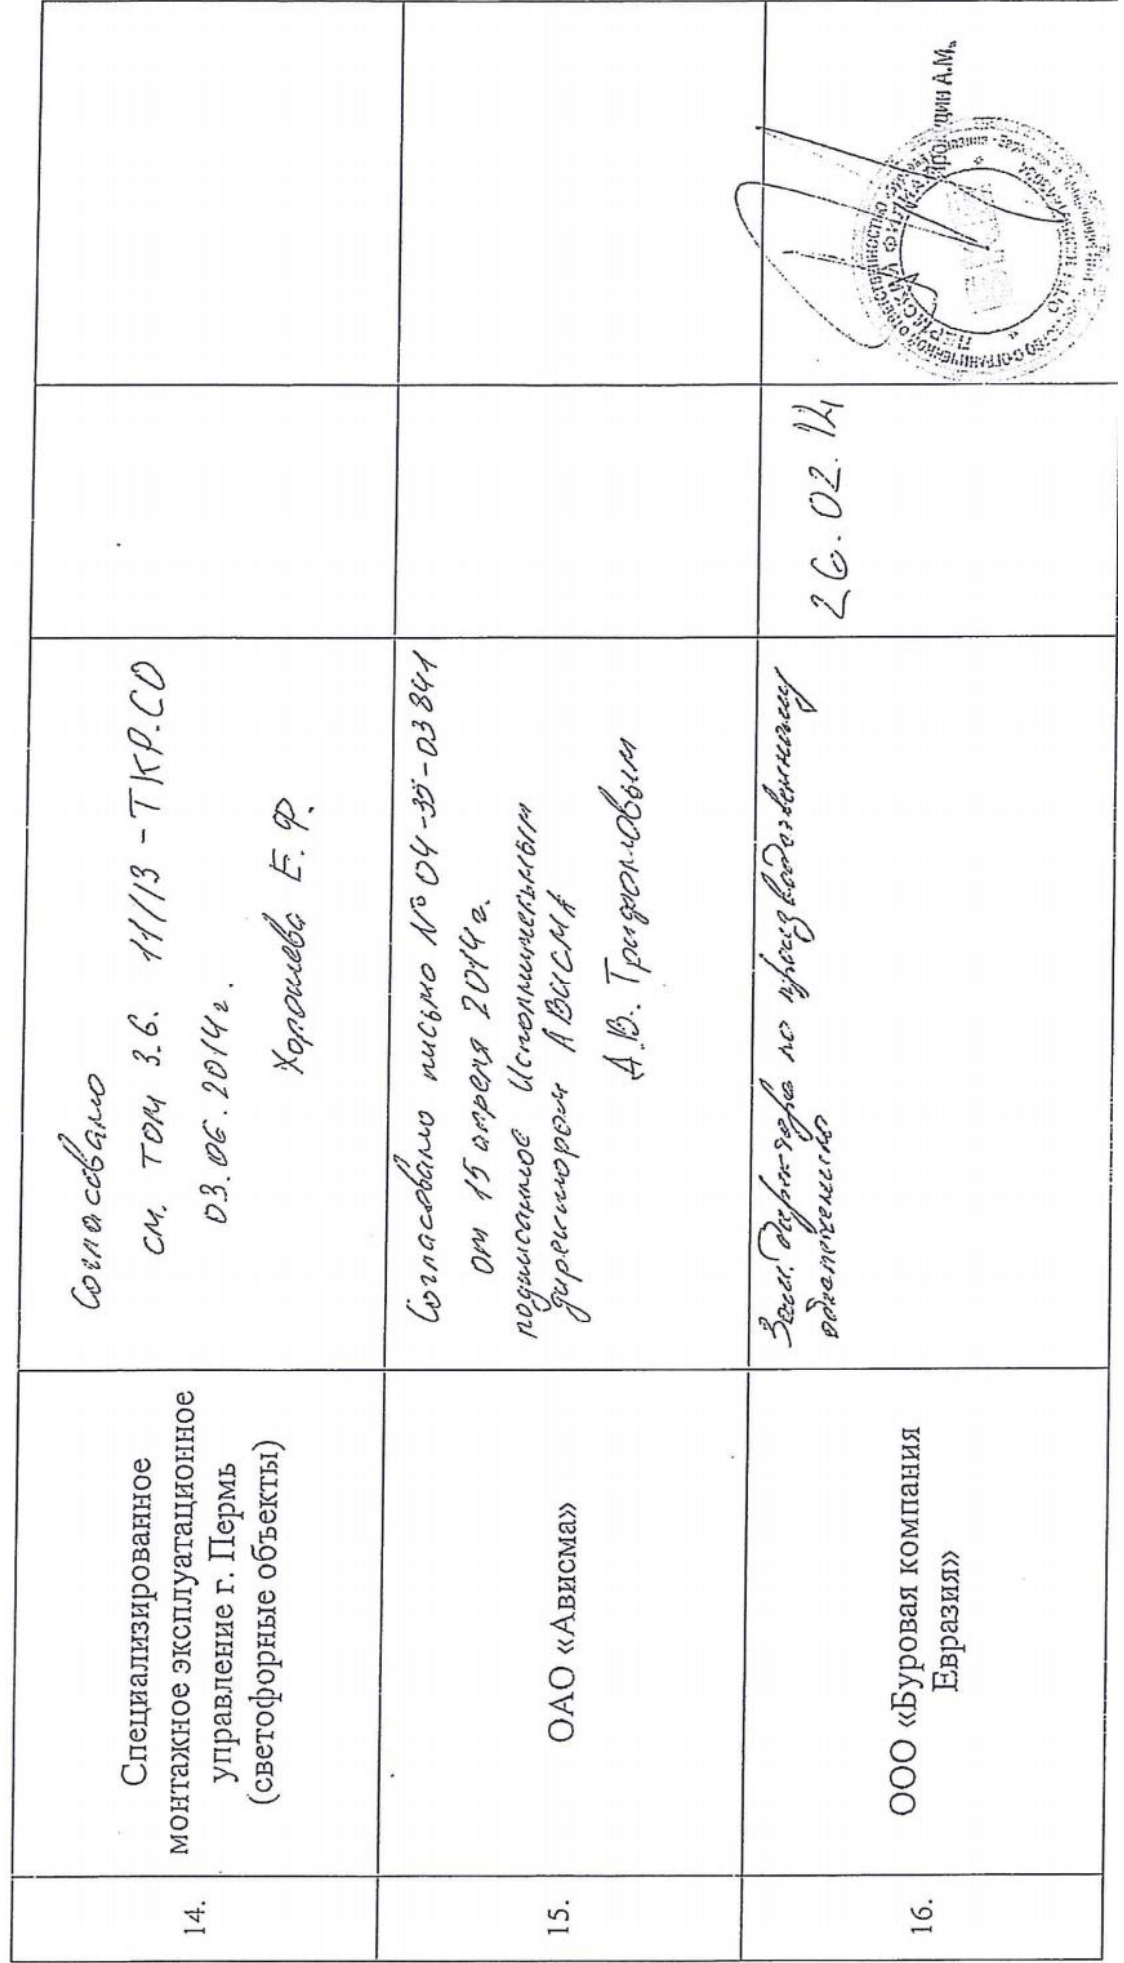 14.
Специализированное
монтажное эксплуатационное
управление г. Пермь
(светофорные объекты)
Согласовано
см. том 3.6. 11/13 - ТКР.СО
03.06.2014г.
Хорошева Е.Ф.
15.
ОАО «Ависма»
Согласовано письмо № 04-35-03841
от 15 апреля 2014г.
подписанное Исполнительным
директором АВИСМА
А.В. Трифоновым
16.
ООО «Буровая компания
Евразия»
Зам. директора по производственному
26.02.14
ПЕРМСКИЙ ФИЛИАЛ
А.М.